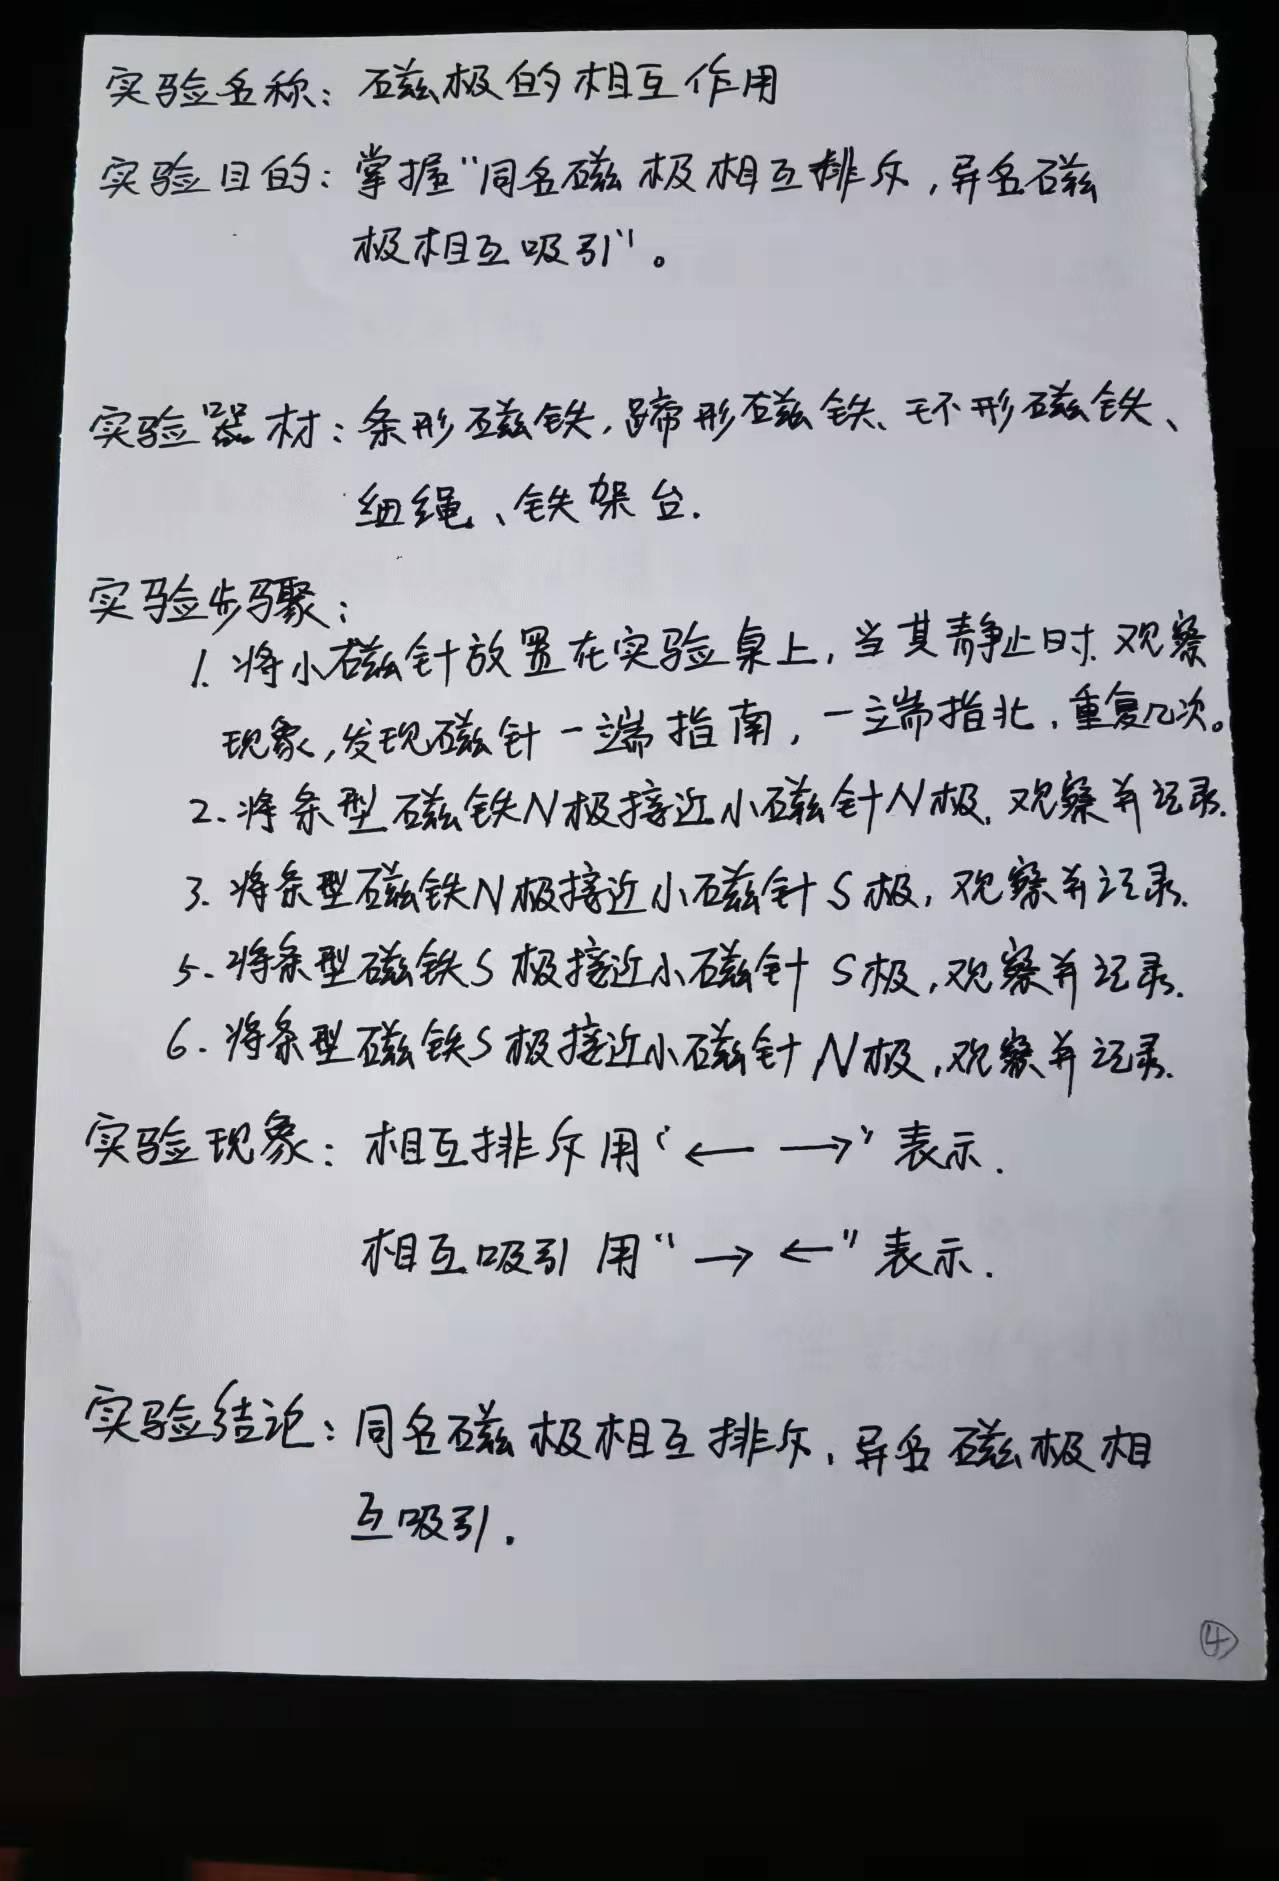 实验名称：磁极的相互作用
实验目的：掌握“同名磁极相互排斥，异名磁
极相互吸引”。
实验器材：条形磁铁，蹄形磁铁、环形磁铁、
细绳、铁架台.
实验步骤：
1. 将小磁针放置在实验桌上，当其静止时.观察
现象，发现磁针一端指南，一端指北，重复几次。
2. 将条型磁铁N极接近小磁针N极，观察并记录.
3. 将条型磁铁N极接近小磁针S极，观察并记录.
5. 将条型磁铁S极接近小磁针S极，观察并记录.
6. 将条型磁铁S极接近小磁针N极，观察并记录.
实验现象：相互排斥用‘← →’表示.
相互吸引用“→ ←”表示.
实验结论：同名磁极相互排斥，异名磁极相
互吸引.
④